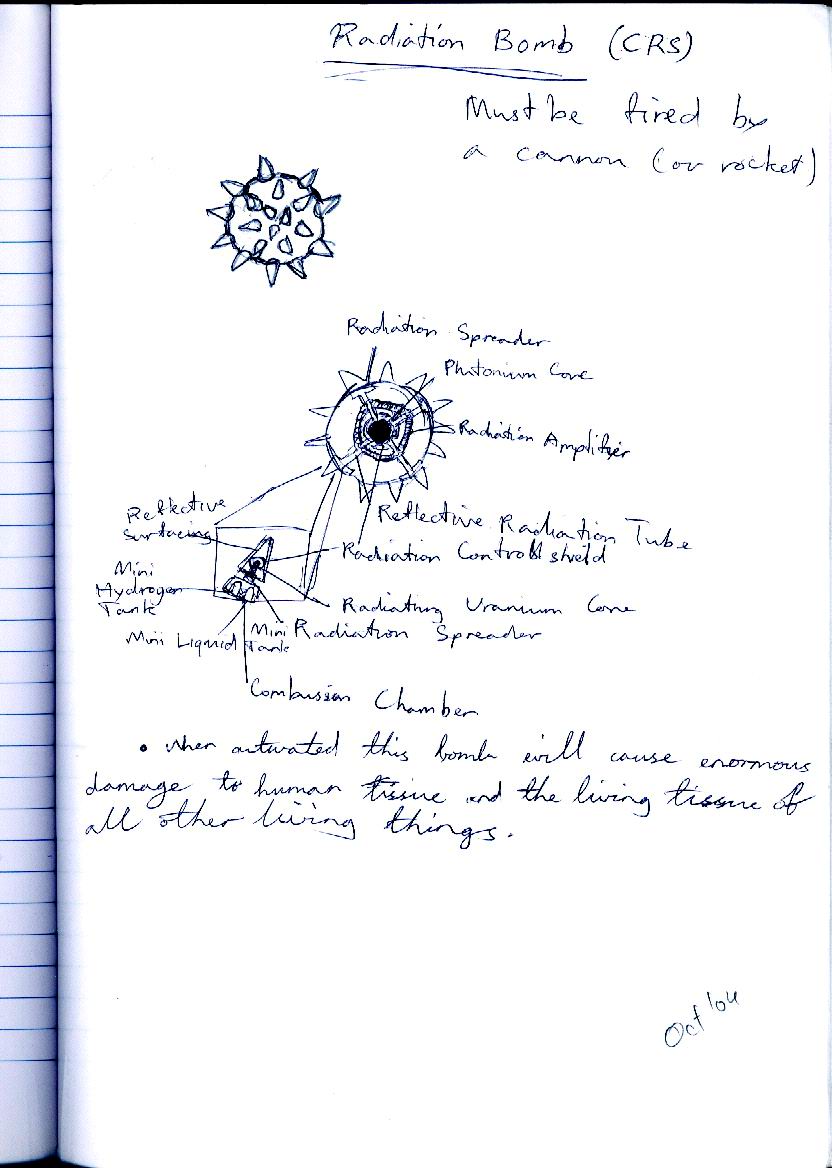 Radiation Bomb (CRS)
Must be fired by
a cannon (or rocket)
Radiation Spreader
Plutonium Core
Radiation Amplifier
Reflective
surfacing
Reflective Radiation Tube
Radiation Control shield
Mini
Hydrogen
Tank
Radiating Uranium Core
Mini Liquid Tank
Mini Radiation Spreader
Combussion Chamber
• When activated this bomb will cause enormous
damage to human tissue and the living tissue of
all other living things.
Oct '04